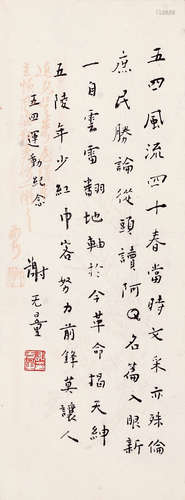 五四風流四十春當時文采亦殊倫
庶民勝論從頭讀阿Q名篇入眼新
一自雲雷翻地軸於今革命揭天紳
五陵年少紅巾客努力前鋒莫讓人
五四運動紀念
謝无量